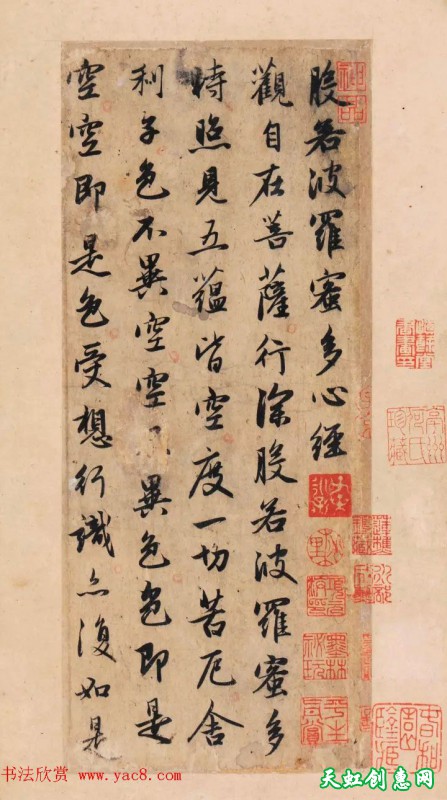 般若波羅蜜多心經
觀自在菩薩行深般若波羅蜜多
時照見五蘊皆空度一切苦厄舍
利子色不異空空不異色色即是
空空即是色受想行識亦復如是
墨林祕玩
平生真賞
书法欣赏 www.yac8.com
天虹创意网